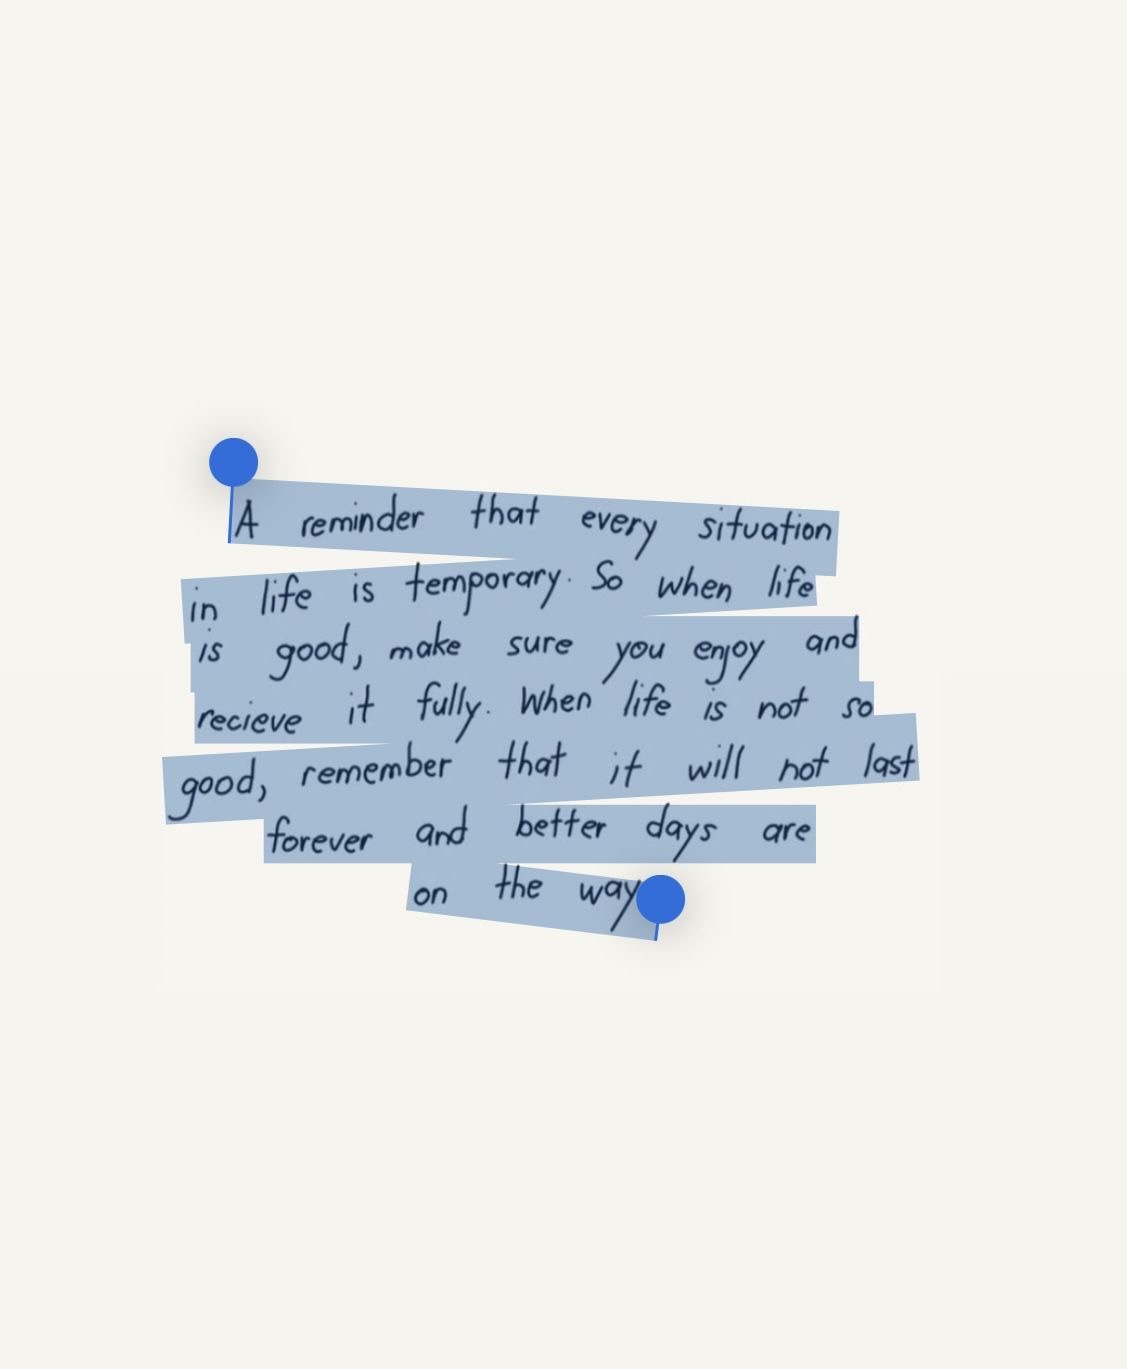 A reminder that every situation
in life is temporary. So when life
is good, make sure you enjoy and
recieve it fully. When life is not so
good, remember that it will not last
forever and better days are
on the way